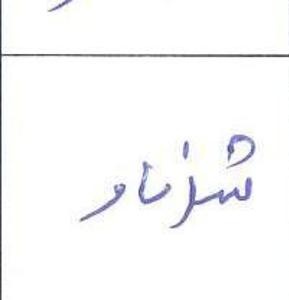 شرناو